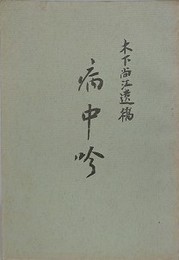 木下尚江遺稿
病中吟